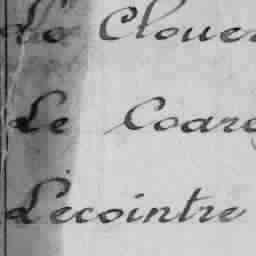 Le Clouer
Le Coare
Lecointre